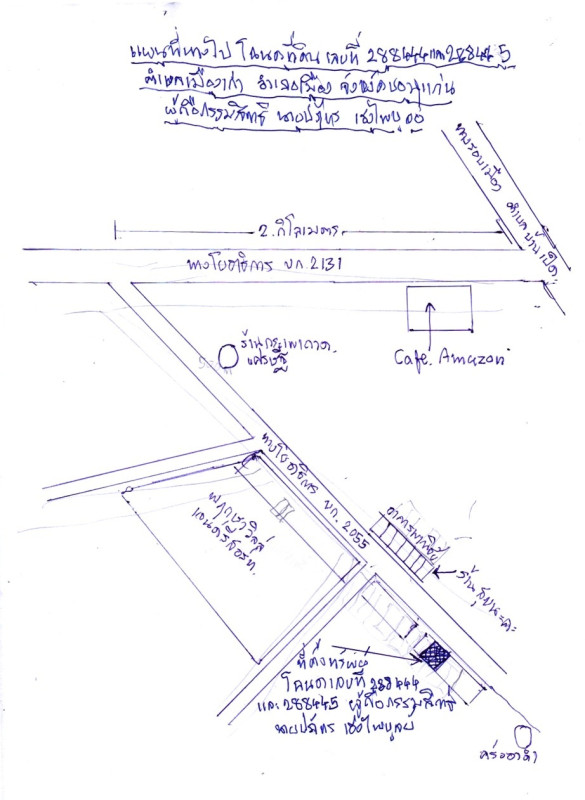 แผนที่ทางไป โฉนดที่ดิน เลขที่ 288444และ288445
ตำบลเมืองเก่า อำเภอเมือง จังหวัดขอนแก่น
ผู้ถือกรรมสิทธิ์ นายปภัทร เฮงไพบูลย์
ทางรอบเมือง ตำบลบ้านเป็ด
2. กิโลเมตร
ทางโยธาธิการ ขก.2131
Cafe. Amazon
ร้านกระเพาถาด
เศรษฐี
ทางโยธาธิการ ขก. 2055
พฤกษาวิลล์
อาคารพาณิชย์
ที่ตั้งทรัพย์
โฉนดเลขที่ 288444
และ 288445 ผู้ถือกรรมสิทธิ์
นายปภัทร เฮงไพบูลย์